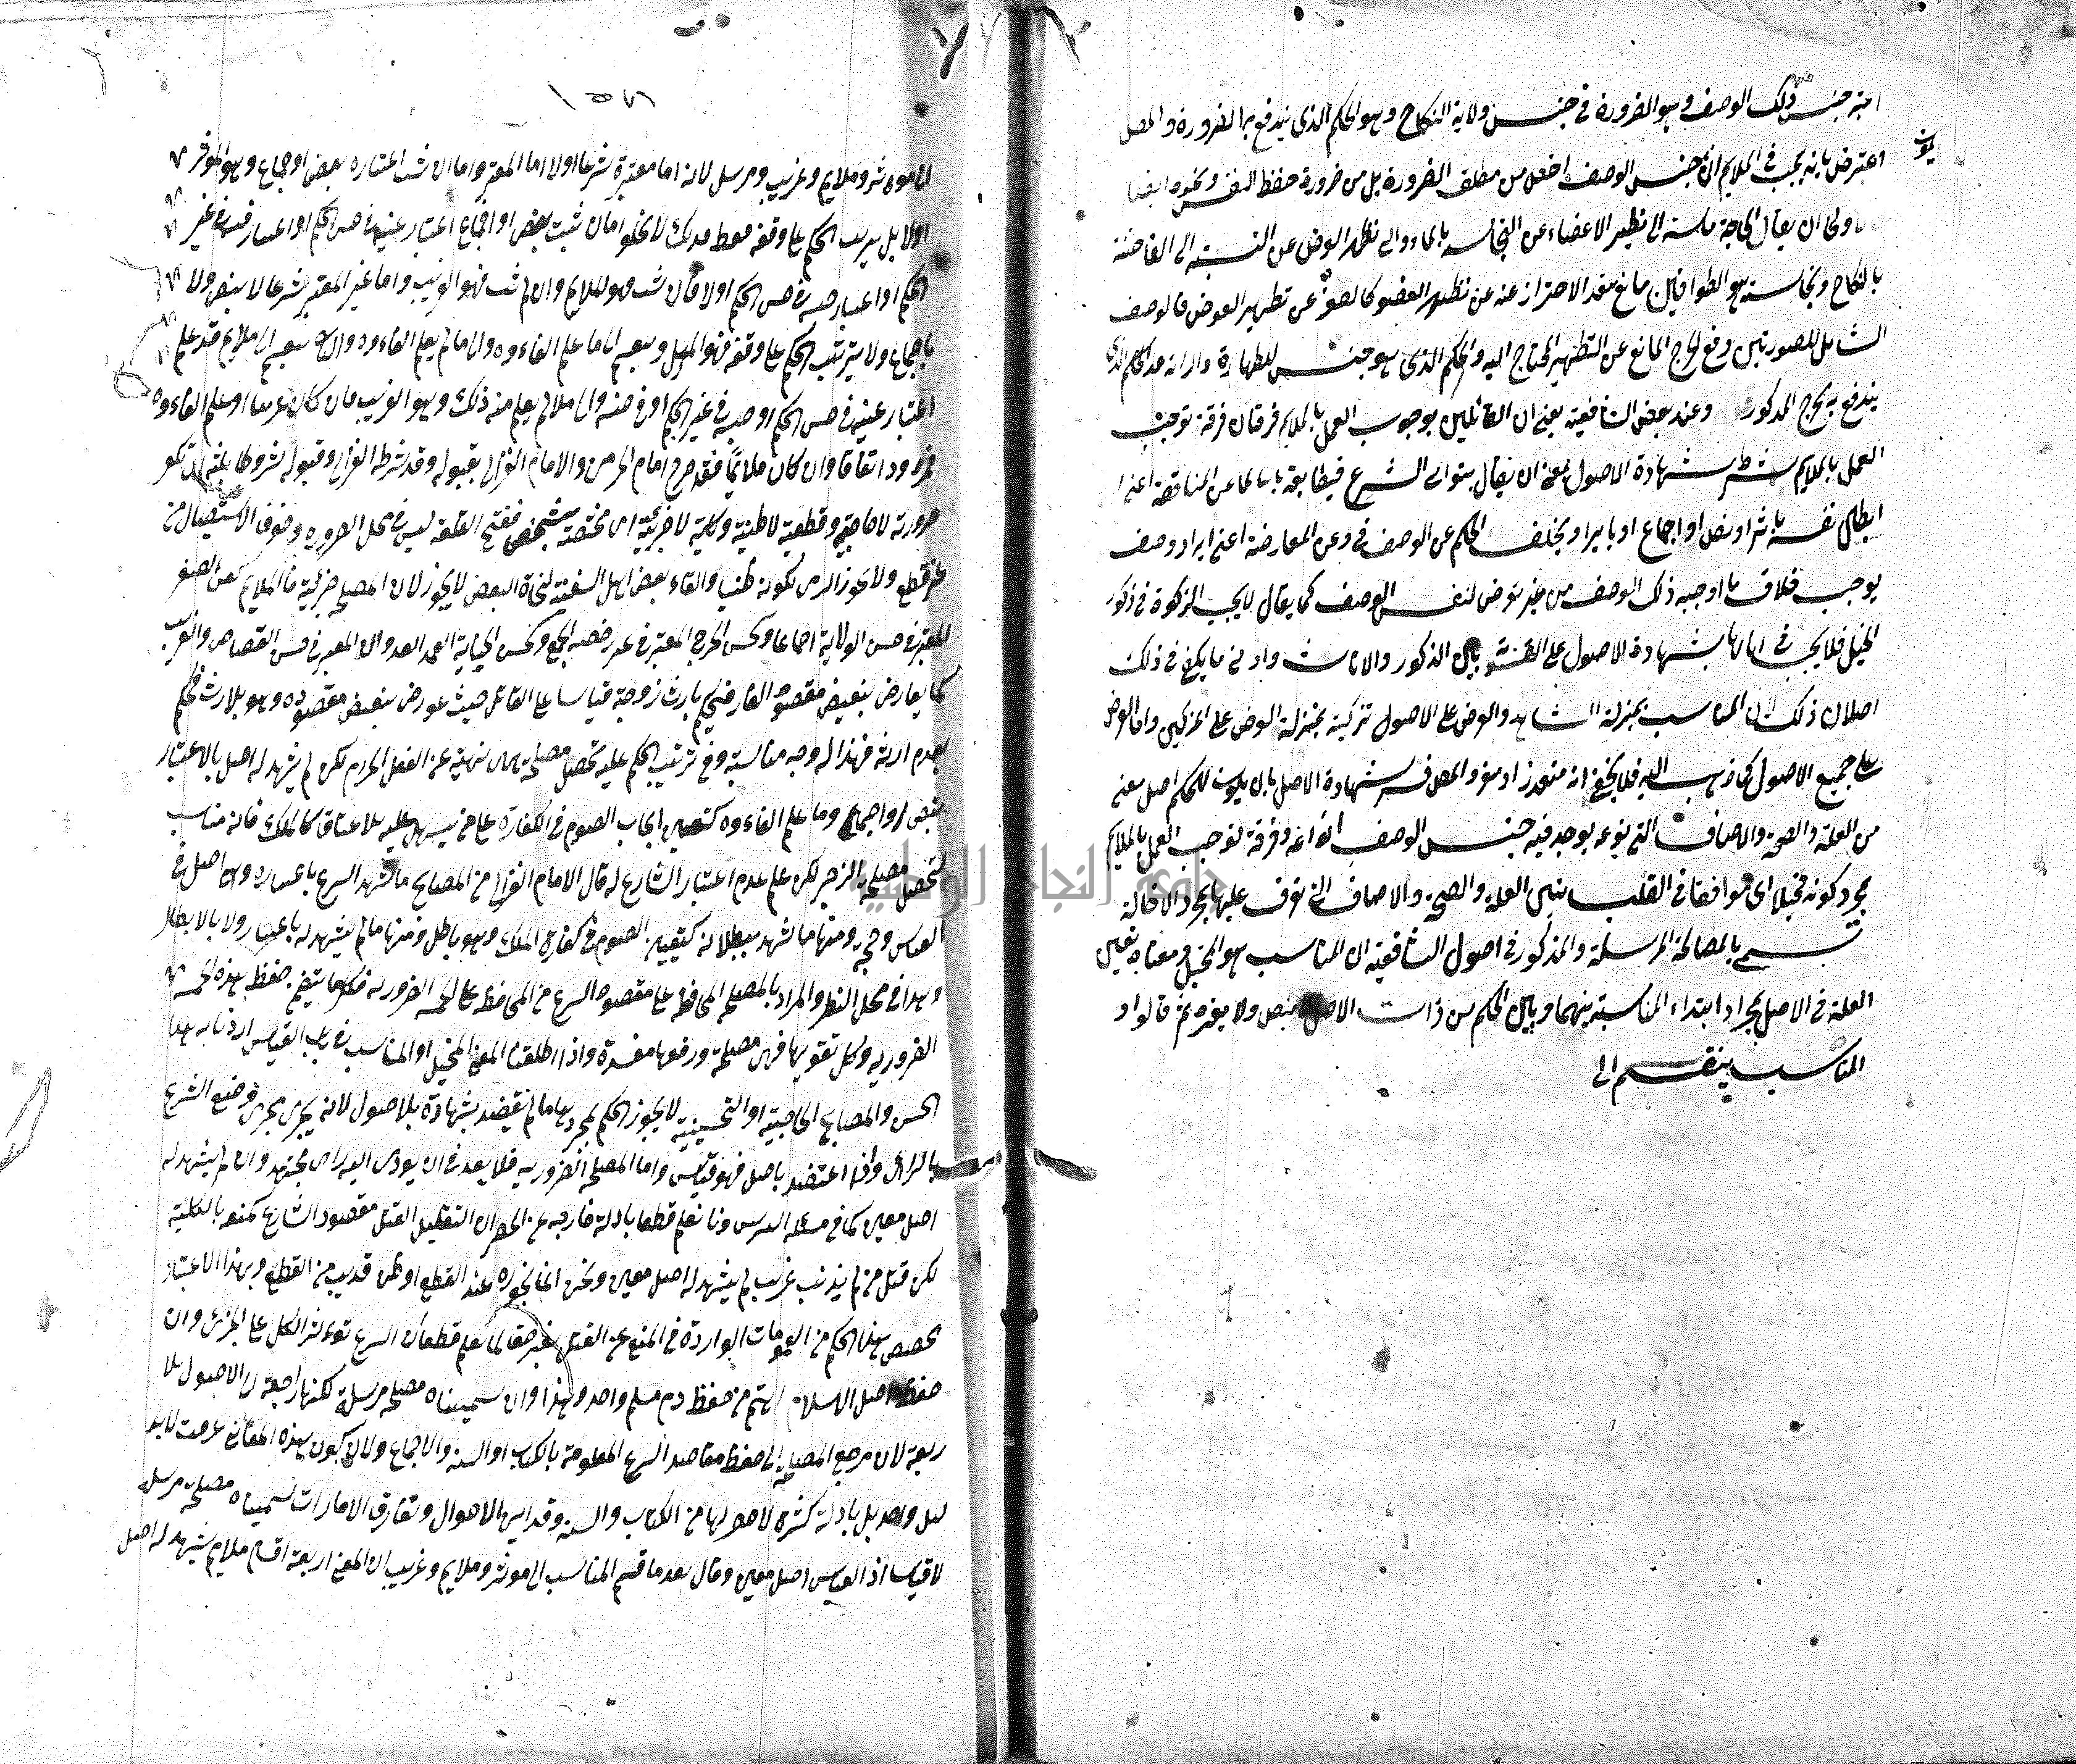 اعتبر جنس ذلك الوصف وهو الضرورة في جنس ولاية النكاح وهو الحكم الذي يندفع به الضرورة والمص
اعترض بانه يجب في الملايم جنس الوصف اخص من مطلق الضرورة بل من ضرورة حفظ النفس ونحوه ايضا
ان يقال الحاجة ماسة الى تطهير الاعضاء عن النجاسه بالماء والى تطهير العرض عن النسبة الى الفاحشة
بالنكاح ونجاسة الطوافين مانع يتعذر الاحتراز عنه عن تطهير العضو كالصغر عن تطهير العرض فالوصف
الشامل للصورتين دفع الحرج المانع عن التطهير المحتاج اليه والحكم الذي هو جنس للطهارة والولاية هو الحكم الذي
يندفع به الحرج المذكور وعند بعض الشافعية يعني ان القائلين بوجوب العمل بالملايم فرقتان فرقة توجب
العمل بالملايم بشرط شهادة الاصول بمعنى ان يقابل بقوانين الشرع فيطابقها سالما عن المناقضة اعني
ابطال نفسه باثر او نص او اجماع او بايراد تخلف الحكم عن الوصف وعن المعارضة اعني ايراد وصف
يوجب خلاف ما اوجبه ذلك الوصف من غير تعرض لنفس الوصف كما يقال لا يجب الزكوة في ذكور
الخيل فلا يجب في اناثها بشهادة الاصول على التسوية بين الذكور والاناث وادنى ما يكفي في ذلك
اصلان ذلك لان المناسب بمنزلة الشاهد والعرض على الاصول تزكية بمنزلة العرض على المزكين واما العرض
على جميع الاصول كما ذهب اليه فلا يخفى انه متعذر او متعسر والمص فسر شهادة الاصل بان يكون للحكم اصل معين
من نوعه يوجد فيه جنس الوصف او نوعه وفرقة توجب العمل بالملايم
بمجرد كونه مخيلا اى موقعا في القلب خيال العلية والصحة والاوصاف التي تعرف عليتها بمجرد الاخالة
تسمى بالمصالح المرسلة والمذكور في اصول الشافعية ان المناسب هو المخيل ومعناه تعيين
العلة في الاصل بمجرد ابداء المناسبة بينهما وبين الحكم من ذات الاصل لا بنص ولا بغيره ثم قالوا و
المناسب ينقسم الى
الى موثر وملايم وغريب ومرسل لانه اما معتبر شرعا او لا اما المعتبر فاما ان ثبت اعتباره بنص او اجماع وهو الموثر
او لا بل بترتب الحكم على وفقه فقط فذلك لا يخلو اما ان ثبت بنص او اجماع اعتبار عينه في جنس الحكم او اعتبار جنسه في عين
الحكم او اعتبار جنسه في جنس الحكم او لا فان ثبت فهو الملايم وان لم يثبت فهو الغريب واما غير المعتبر شرعا لا بنص ولا
باجماع ولا بترتب الحكم على وفقه فهو المرسل وينقسم الى ما علم الغاءوه والى ما لم يعلم الغاءوه والثاني ينقسم الى ملايم قد علم
اعتبار عينه في جنس الحكم او جنسه في عين الحكم او في جنسه والى ما لم يعلم منه ذلك وهو الغريب فان كان غريبا او علم الغاءوه
فمردود اتفاقا وان كان ملايما فقد صرح امام الحرمين والامام الغزالي بقبوله وقد شرط الغزالي في قبوله شروطا ثلثة ان تكون
ضرورية لا حاجية وقطعية لا ظنية وكلية لا جزئية اى مختصة بشخص ففتح القلعة ليس في محل الضرورة وخوف الاستيصال من
غير قطع ولا يجوز الرمي لكونه ظنيا والقاء بعض اهل السفينة لنجاة البعض لا يجوز لان المصلحة جزئية فالملايم كعين الصغر
المعتبر في جنس الولاية اجماعا وكجنس الحرج المعتبر في عين رخصة الجمع وكجنس الجناية العمد العدوان المعتبر في جنس القصاص والغريب
كما يعارض بنقيض مقصود الفار فيحكم بارث زوجته قياسا على القاتل حيث عورض بنقيض مقصوده وهو الارث فحكم
بعدم ارثه فهذا له وجه مناسبة وفي ترتيب الحكم عليه تحصيل مصلحة هى نهيه عن الفعل الحرام لكن لم يشهد له اصل بالاعتبار
بنص او اجماع وما علم الغاءوه كتعيين ايجاب الصوم في الكفارة على من يسهل عليه الاعتاق كالملك فانه مناسب
لتحصيل مصلحة الزجر لكن علم عدم اعتبار الشارع له قال الامام الغزالي من المصالح ما شهد الشرع باعتباره وهى اصل في
القياس وحجة ومنها ما شهد ببطلانه كتعيين الصوم في كفارة الملك وهو باطل ومنها ما لم يشهد له باعتبار ولا بالابطال
وهذا في محل النظر والمراد بالمصلحة المحافظة على مقصود الشرع من المحافظة على الخمسة الضرورية فكل ما يتضمن حفظ هذه الخمسة
الضرورية وكل تقويها فهى مصلحة ودفعها مفسدة واذا اطلقنا المعنى المخيل او المناسب في باب القياس اردنا به هذا
الجنس والمصالح الحاجية او التحسينية لا يجوز الحكم بمجردها ما لم يعتضد بشهادة الاصول لانه يجرى مجرى وضع الشرع
بالراى واذا اعتضد باصل فهو قياس واما المصلحة الضرورية فلا بعد في ان يودى اليه راى مجتهد وان لم يشهد له
اصل معين كما في مسئلة الترس فانا نعلم قطعا بادلة خارجة عن الحصر ان التقليل القتل مقصود الشارع كمنعه بالكلية
لكن قتل من لم يذنب غريب لم يشهد له اصل معين ونحن انما نجوزه عند القطع او ظن قريب من القطع وبهذا الاعتبار
نخصص هذا الحكم من العمومات الواردة في المنع عن القتل بغير حق لما نعلم قطعا ان الشرع يوثر الكل على الجزئى وان
حفظ اصل الاسلام اهم من حفظ دم مسلم واحد وهذا وان سميناه مصلحة مرسلة لكنها راجعة الى الاصول الا
ربعة لان مرجع المصلحة الى حفظ مقاصد الشرع المعلومة بالكتاب او السنة والاجماع ولان كون هذه المعاني عرفت لا بد
ليل واحد بل بادلة كثيرة لا حصر لها من الكتاب والسنة وقراين الاحوال وتفاريق الامارات نسميناه مصلحة مرسلة
لا قياسا اذ القياس اصل معين وقال بعد ما قسم المناسب الى موثر وملايم وغريب ان المعنى اربعة اقسام ملايم يشهد له اصل
جامعة النجاح الوطنية